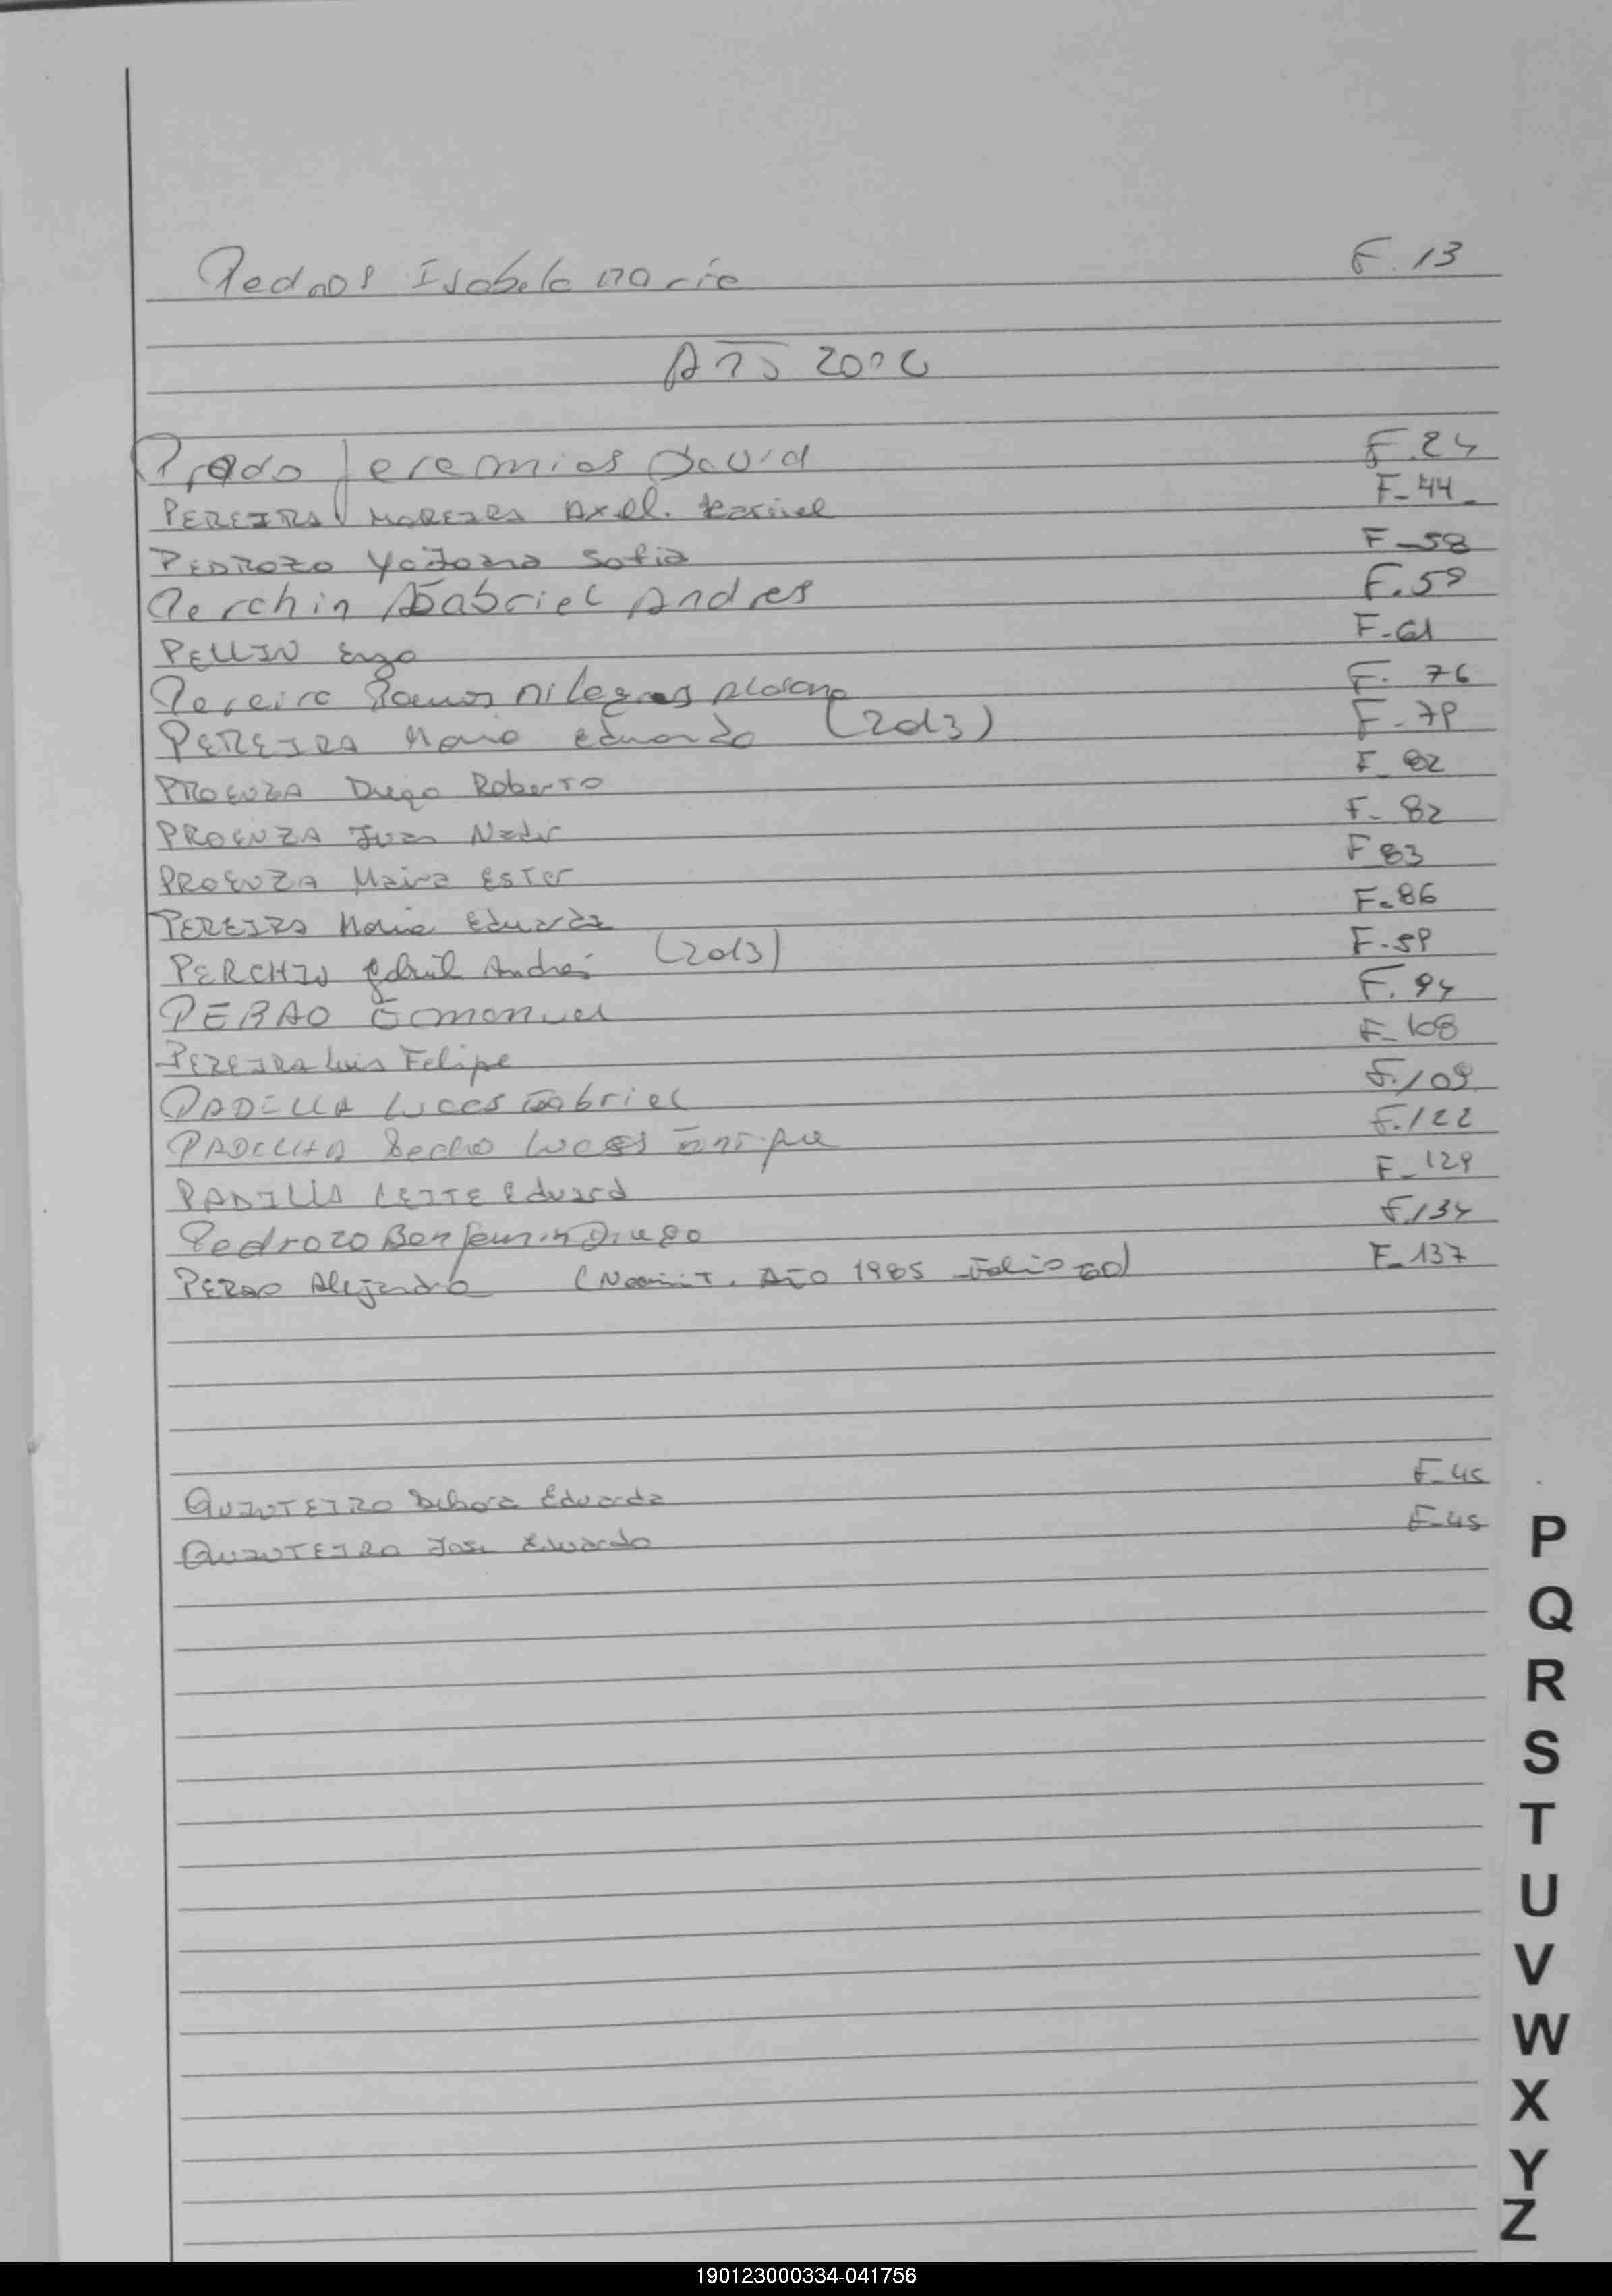 Pedros Isabela Maria F. 13
AÑO
Prado Jeremias David F. 24
PEREIRA MOREIRA Axel. F-44-
PEDROZO Sofia F-58
Perchin Gabriel Andres F. 59
PELLIN Enzo F-61
Pereira Ramos Milagros F. 76
PEREIRA Maria Eduarda (2013) F-79
PROENZA Diego Roberto F-82
PROENZA Juan Nadir F-82
PROENZA Maira Ester F 83
PEREIRA Maria Eduarda F-86
PERCHIN Gabriel Andres (2013) F-59
PERAO Emanuel F. 94
PEREIRA Luis Felipe F-108
PADILLA Lucas Gabriel F. 109
PADILLA Lucas F. 122
PADILLA LEITE Eduard F-129
Pedrozo Benjamin Diego F. 134
PERAO Alejandro Año 1985 Folio 60) F-137
QUINTEIRO Debora Eduarda F-45
QUINTEIRO Jose Eduardo F-45
P
Q
R
S
T
U
V
W
X
Y
Z
190123000334-041756